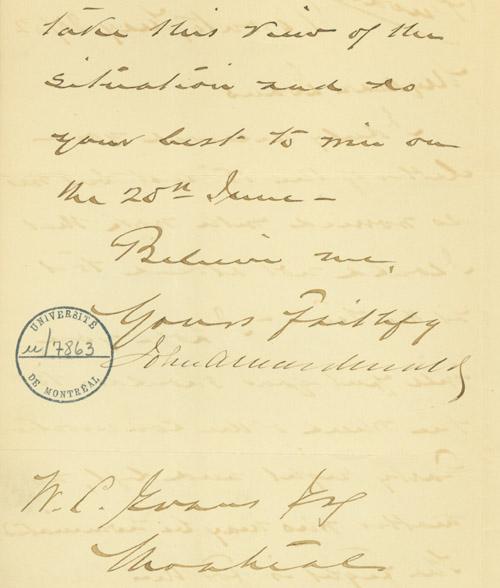 take this view of the
situation and do
your best to win on
the 20th June –
Believe me,
Yours Faithfy
John A Macdonald
UNIVERSITÉ
u/7863
DE MONTRÉAL
W. C. Evans Esq
Montreal